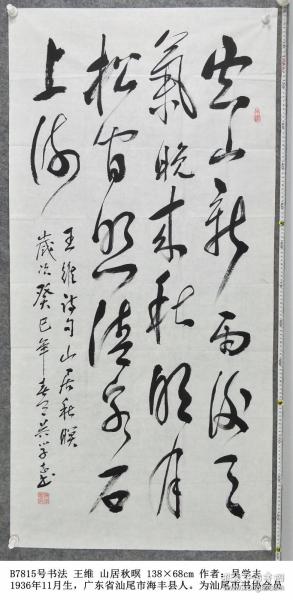 空山新雨后天
氣晚来秋明月
松间照清泉石
上流
王維诗句山居秋暝
歲次癸巳年春月吴学志
B7815号书法 王维 山居秋暝 138×68cm 作者：吴学志
1936年11月生，广东省汕尾市海丰县人。为汕尾市书协会员